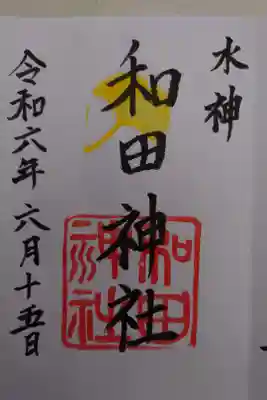 水神
和田神社
和田神社
令和六年六月十五日